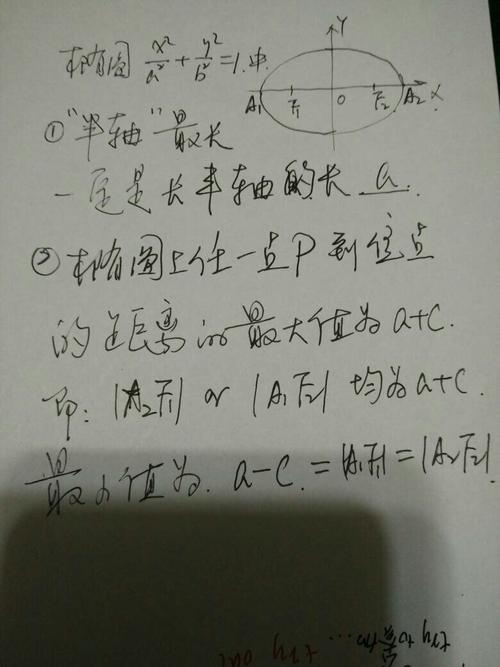 椭圆 x²/a² + y²/b² = 1 中
Y
A₁ F₁ O F₂ A₂ X
①"半轴"最长
一定是长半轴的长 a.
②椭圆上任一点P到焦点
的距离的最大值为a+c.
即: |A₂F₁| or |A₁F₂| 均为a+c.
最小值为 a-c = |A₁F₁| = |A₂F₂|